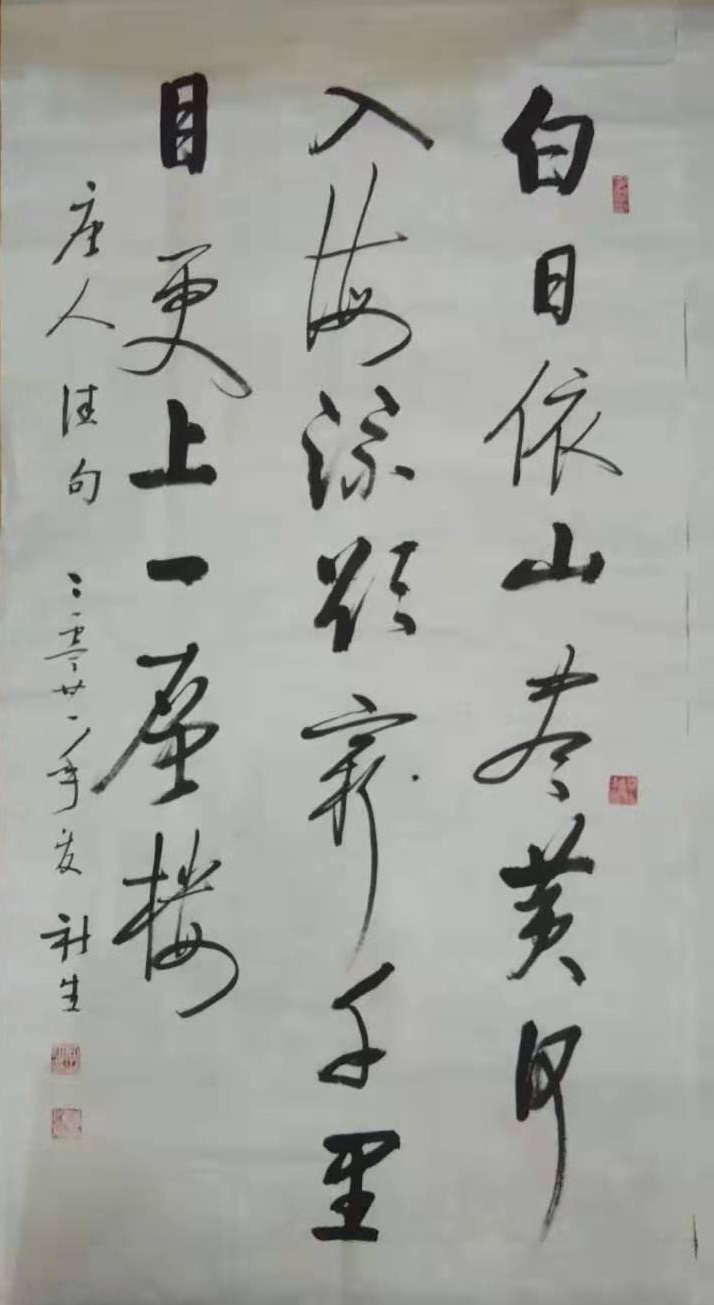 白日依山尽黄河
入海流欲穷千里
目更上一层楼
唐人佳句 二零廿一年夏 社生